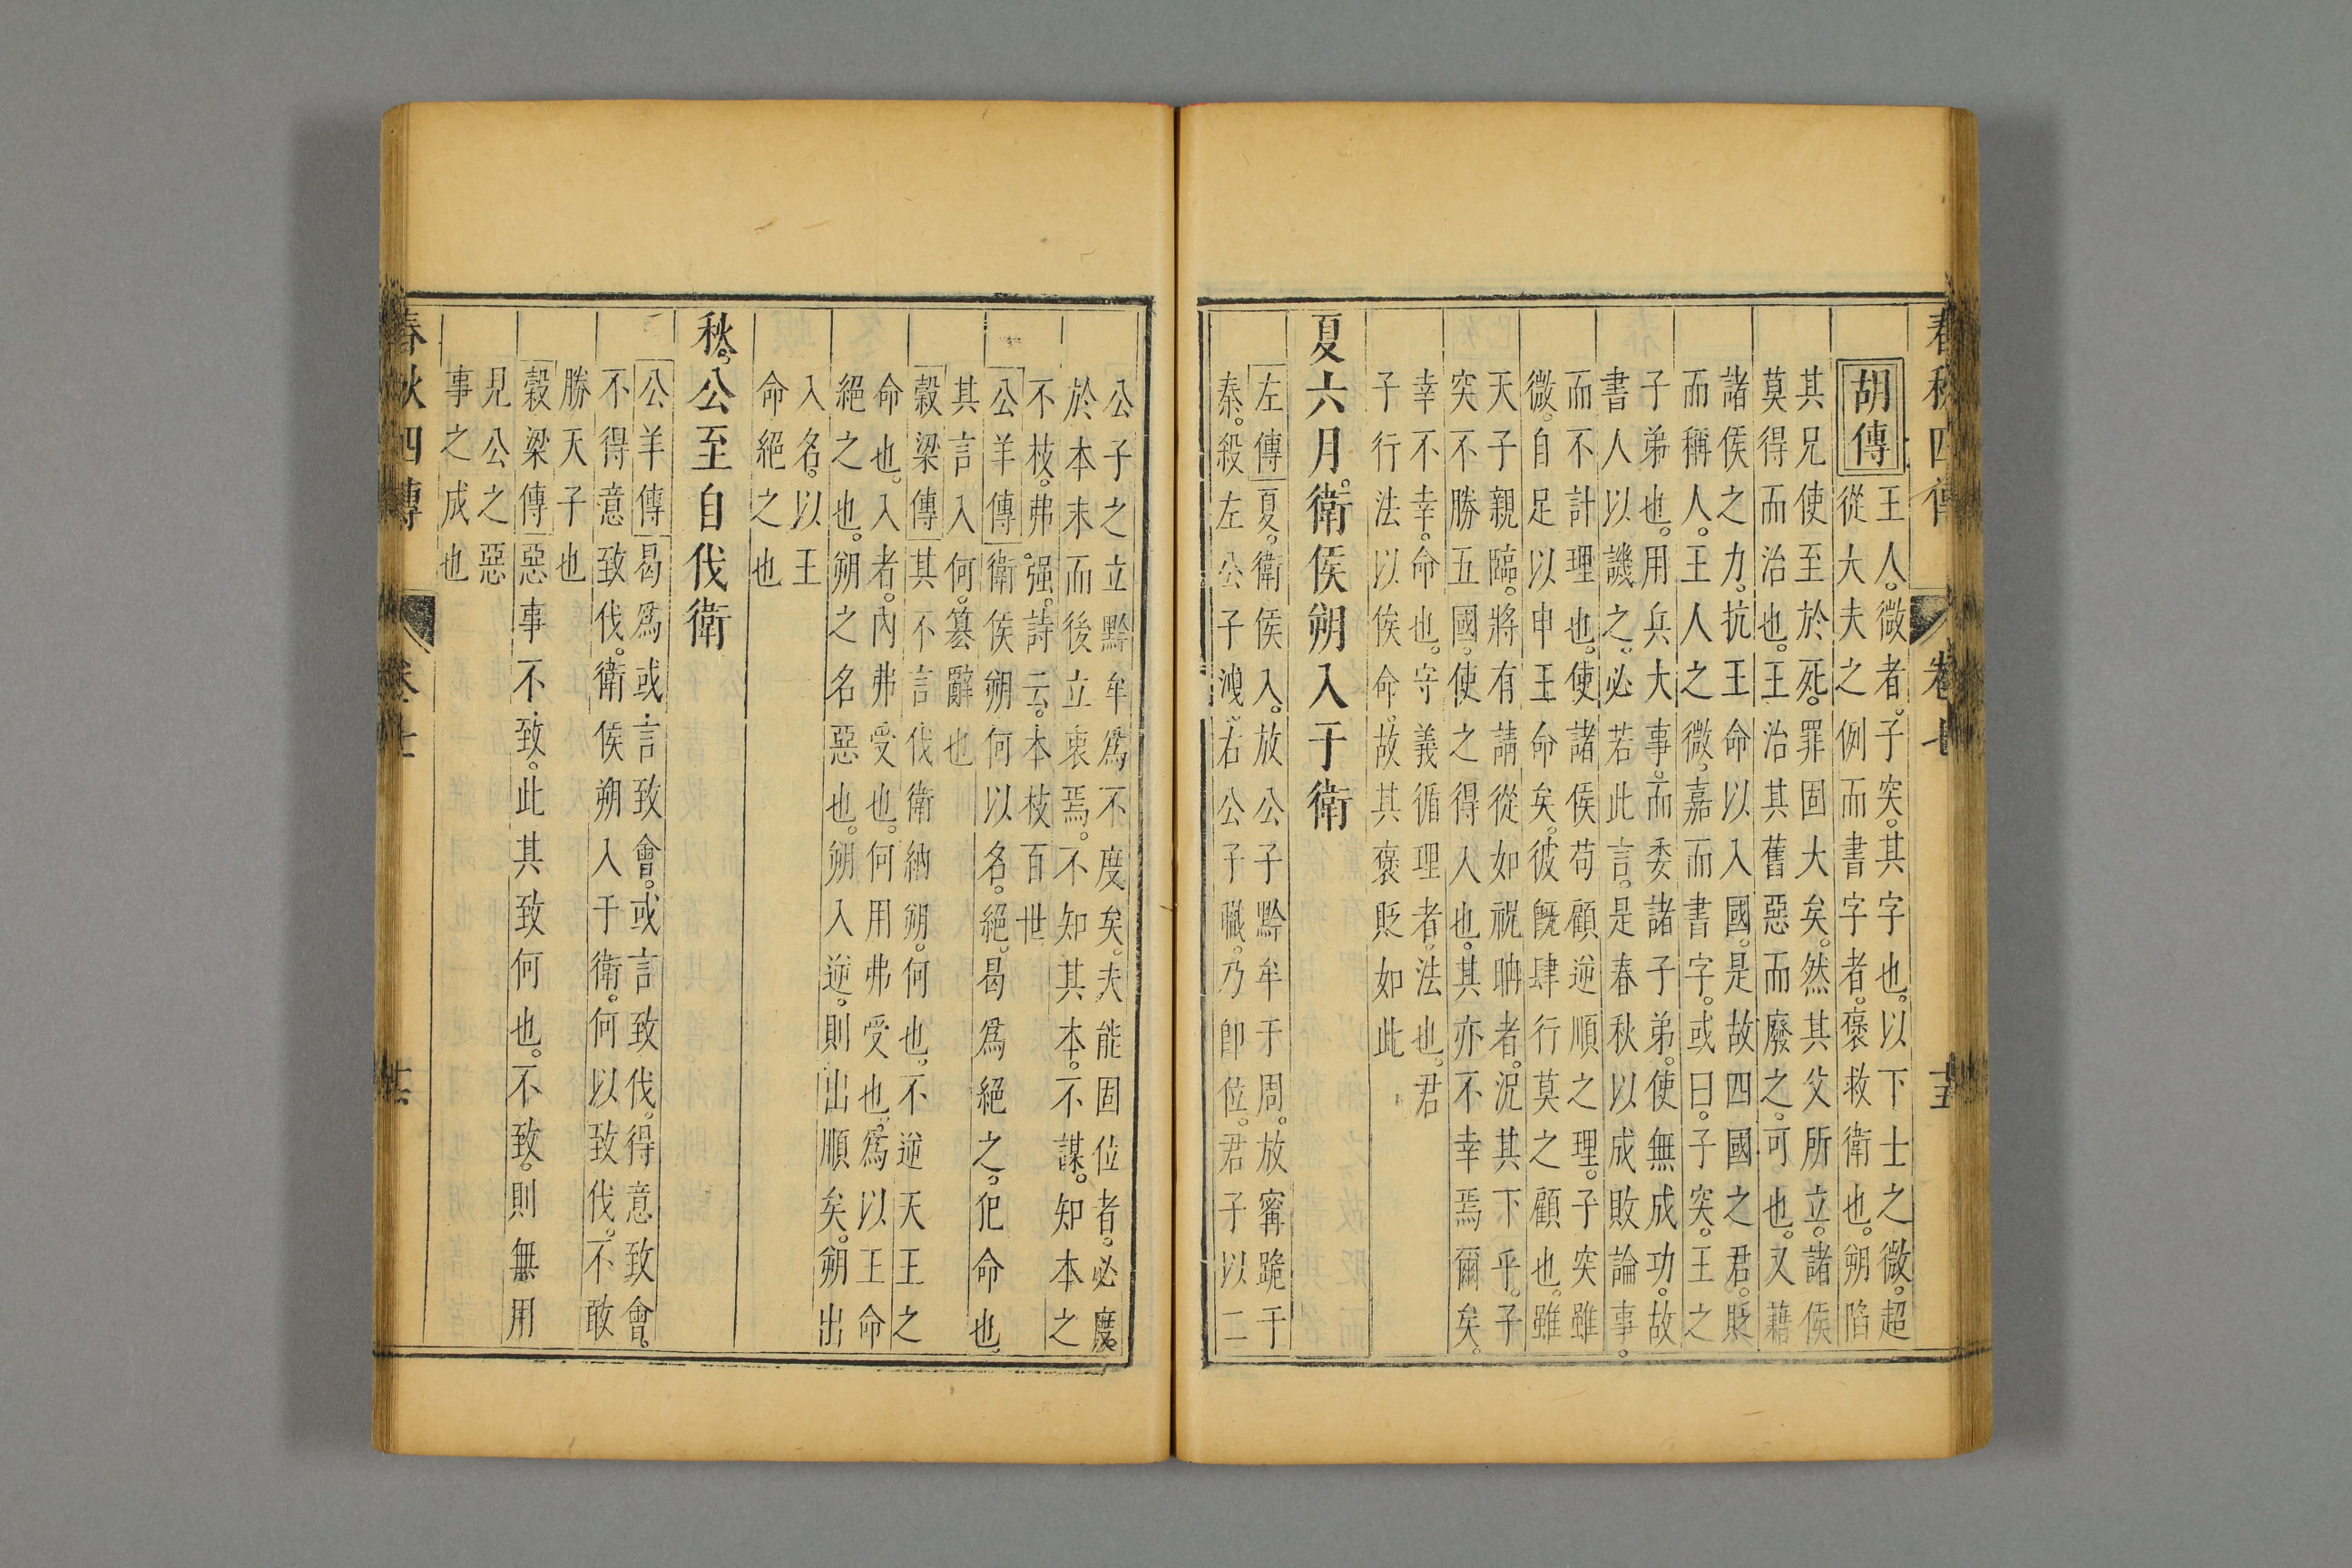 春秋四傳 卷七
胡傳 王人。微者。子突。其字也。以下士之微。超
從大夫之例而書字者。褒救衛也。朔陷
其兄使至於死。罪固大矣。然其父所立。諸侯
莫得而治也。王治其舊惡而廢之。可也。又藉
諸侯之力。抗王命以入國。是故四國之君。貶
而稱人。王人之微。嘉而書字。或曰。子突。王之
子弟也。用兵大事。而委諸子弟。使無成功。故
書人以譏之。必若此言。是春秋以成敗論事。
而不計理也。使諸侯苟顧逆順之理。子突雖
微。自足以申王命矣。彼旣肆行莫之顧也。雖
天子親臨。將有請從如祝聃者。況其下乎。子
突不勝五國。使之得入也。其亦不幸焉爾矣。
幸不幸。命也。守義循理者。法也。君
子行法以俟命。故其褒貶如此
夏六月。衛侯朔入于衛
左傳 夏。衛侯入。放公子黔牟于周。放甯跪于
秦。殺左公子洩。右公子職。乃卽位。君子以二
公子之立黔牟爲不度矣。夫能固位者。必度
於本末而後立衷焉。不知其本。不謀。知本之
不枝。弗强。詩云。本枝百世
公羊傳 衛侯朔何以名。絕。曷爲絕之。犯命也。
其言入何。篡辭也
穀梁傳 其不言伐衛納朔。何也。不逆天王之
命也。入者。內弗受也。何用弗受也。爲以王命
絕之也。朔之名惡也。朔入逆。則出順矣。朔出
入名。以王
命絕之也
秋。公至自伐衛
公羊傳 曷爲或言致會。或言致伐。得意致會。
不得意致伐。衛侯朔入于衛。何以致伐。不敢
勝天子也
穀梁傳 惡事不致。此其致何也。不致。則無用
見公之惡
事之成也
春秋四傳 卷七